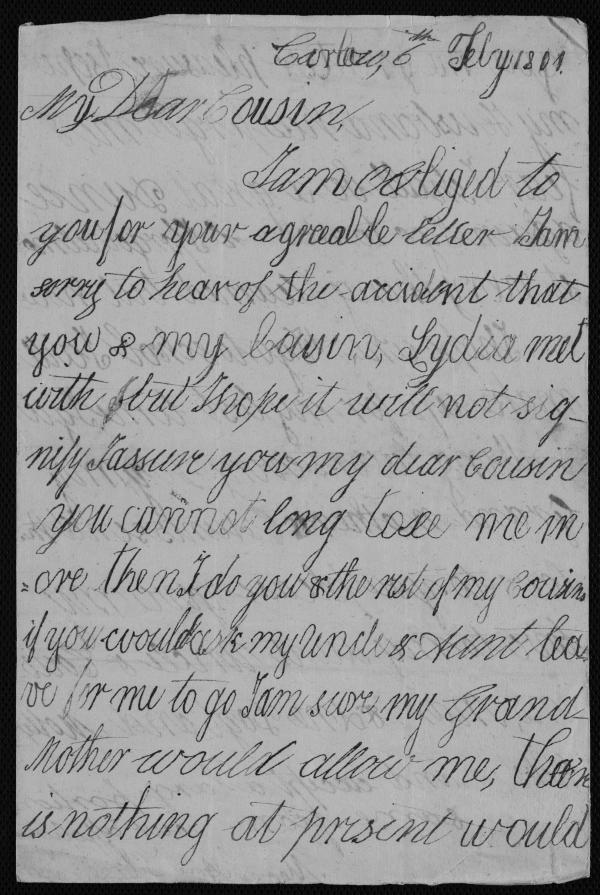 Carlow, 6th Feby 1801.
My Dear Cousin,
I am obliged to
you for your agreeable letter I am
sorry to hear of the accident that
you & my Cousin, Lydia met
with but I hope it will not sig-
nify I assure you my dear Cousin
you cannot long to see me m
=ore then I do you & the rest of my Cousins
if you would ask my Uncle & Aunt lea
ve for me to go I am sure my Grand-
Mother would allow me, there
is nothing at present would